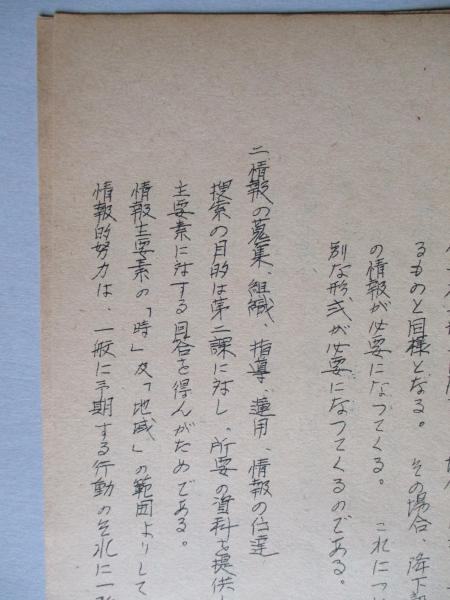 るものと同様となる。その場合、降下
の情報が必要になつてくる。これにつ
別な形式が必要になつてくるのである。
二、情報の蒐集、組織、指導、運用、情報の伝達
捜索の目的は第二課に対し、所要の資料を提供
主要素に対する回答を得んがためである。
情報主要素の「時」及「地域」の範囲よりして
情報的努力は、一般に予期する行動のそれに一